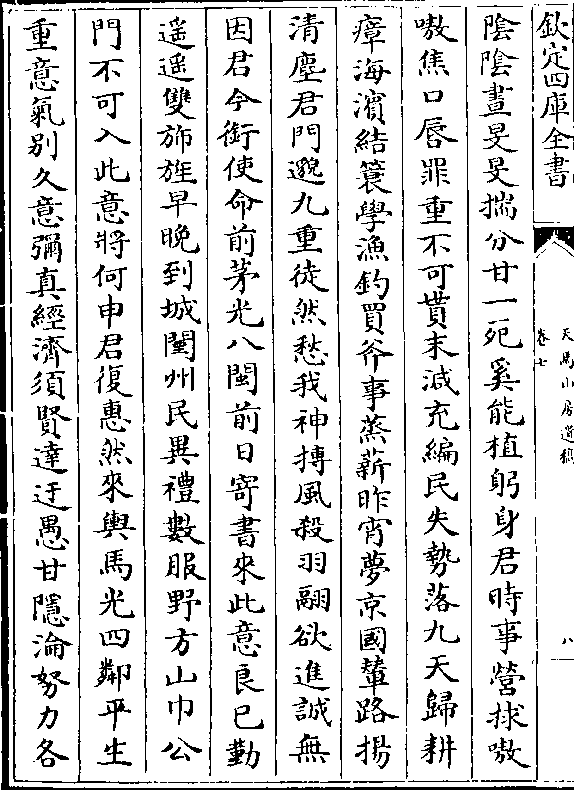 欽定四庫全書
天馬山房遺稿
卷七
八
陰陰晝旻旻揣分甘一死奚能植躬身君時事營捄嗷
嗷焦口唇罪重不可貰末減充編民失勢落九天歸耕
瘴海濱結蓑學漁釣買斧事蒸薪昨宵夢京國輦路揚
清塵君門邈九重徒然愁我神摶風殺羽翮欲進誠無
因君今銜使命前茅光八閩前日寄書來此意良已勤
遥遥雙斾旌早晚到城闉州民異禮數服野方山巾公
門不可入此意將何申君復惠然來輿馬光四鄰平生
重意氣别久意彌真經濟須賢達迂愚甘隱淪努力各